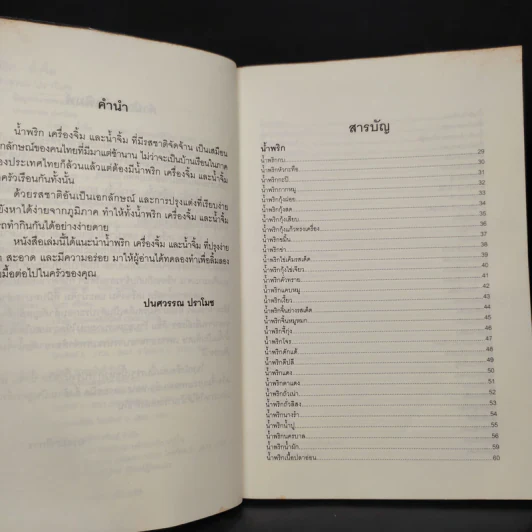 คำนำ
น้ำพริก เครื่องจิ้ม และน้ำจิ้ม ที่มีรสชาติจัดจ้าน เป็นเสมือน
กลักษณ์ของคนไทยที่มีมาแต่ช้านาน ไม่ว่าจะเป็นบ้านเรือนในภาค
องประเทศไทยก็ล้วนแล้วแต่ต้องมีน้ำพริก เครื่องจิ้ม และน้ำจิ้ม
ครัวเรือนกันทั้งนั้น
ด้วยรสชาติอันเป็นเอกลักษณ์ และการปรุงแต่งที่เรียบง่าย
ยังหาได้ง่ายจากภูมิภาค ทำให้ทั้งน้ำพริก เครื่องจิ้ม และน้ำจิ้ม
รถทำกินกันได้อย่างง่ายดาย
หนังสือเล่มนี้ได้แนะนำน้ำพริก เครื่องจิ้ม และน้ำจิ้ม ที่ปรุงง่าย
สะอาด และมีความอร่อย มาให้ผู้อ่านได้ทดลองทำเพื่อลิ้มลอง
มื้อต่อไปในครัวของคุณ
ปนศวรรณ ปราโมช
สารบัญ
น้ำพริก
น้ำพริกกบ 29
น้ำพริกหัวกะทิอ 30
น้ำพริกกะปิ 31
น้ำพริกกากหมู 32
น้ำพริกกุ้งฝอย 33
น้ำพริกกุ้งสด 34
น้ำพริกกุ้งเสียบ 35
น้ำพริกกุ้งแก้วทรงเครื่อง 36
น้ำพริกขมิ้น 37
น้ำพริกข่า 38
น้ำพริกไข่เค็มรสเด็ด 39
น้ำพริกกุ้งไข่เจียว 40
น้ำพริกคั่วทราย 41
น้ำพริกแคบหมู 42
น้ำพริกเงี้ยว 43
น้ำพริกจิ้นย่างรสเด็ด 44
น้ำพริกจิ้นหมูหมก 45
น้ำพริกจี้กุ่ง 46
น้ำพริกโจร 47
น้ำพริกดักแด้ 48
น้ำพริกดีปลี 49
น้ำพริกแดง 50
น้ำพริกตาแดง 51
น้ำพริกถั่วเน่า 52
น้ำพริกถั่วลิสง 53
น้ำพริกนางรำ 54
น้ำพริกน้ำปู 55
น้ำพริกนครบาล 56
น้ำพริกน้ำผัก 59
น้ำพริกเนื้อปลาช่อน 60